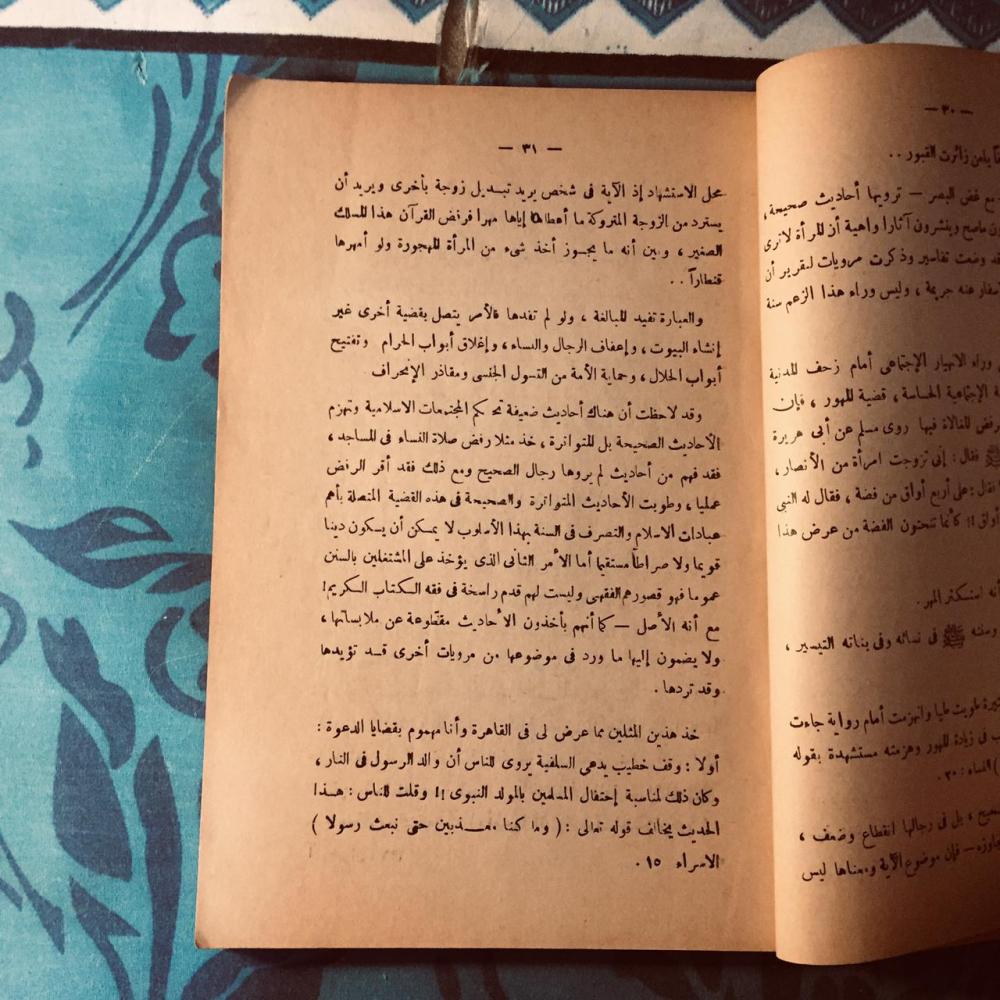 — ٣٠ —
يامن زائرت القبور . .
مع غض البصر — ترويها أحاديث صحيحة ،
ماصح وينشرون آثارا واهية أن المرأة لا ترى
وضعت تفاسير وذكرت مرويات لتقرير أن
عنه جريمة ، وليس وراء هذا الزعم سنة
وراء الانهيار الإجتماعى أمام زحف المدنية
الإجتماعية الحساسة ، قضية المهور ، فإن
المغالاة فيها روى مسلم عن أبى هريرة
ﷺ فقال : إنى تزوجت امرأة من الأنصار ،
فقال : على أربع أواق من فضة ، فقال له النبى
أواق !! كأنما تنحتون الفضة من عرض هذا
استكثر المهر .
وسنته ﷺ فى نسائه وفى بناته التيسير ،
طويت طيا وانهزمت أمام رواية جاءت
فى زيادة المهور وهزمته مستشهدة بقوله
النساء : ٢٠ .
بل فى رجالها انقطاع وضعف ،
فإن موضوع الآية ومعناها ليس
— ٣١ —
محل الاستشهاد إذ الآية فى شخص يريد تبديل زوجة بأخرى ويريد أن
يسترد من الزوجة المتروكة ما أعطاها إياها مهرا فرفض القرآن هذا المسلك
الصغير ، وبين أنه ما يجوز أخذ شىء من المرأة المهجورة ولو أمهرها
قنطاراً . .
والعبارة تفيد المبالغة ، ولو لم تفدها فالأمر يتصل بقضية أخرى غير
إنشاء البيوت ، وإعفاف الرجال والنساء ، وإغلاق أبواب الحرام وتفتيح
أبواب الحلال ، وحماية الأمة من التسول الجنسى ومقاذر الإنحراف
وقد لاحظت أن هناك أحاديث ضعيفة تحكم المجتمعات الاسلامية وتهزم
الأحاديث الصحيحة بل المتواترة ، خذ مثلا رفض صلاة النساء فى المساجد ،
فقد فهم من أحاديث لم يروها رجال الصحيح ومع ذلك فقد أقر الرفض
عمليا ، وطويت الأحاديث المتواترة والصحيحة فى هذه القضية المتصلة بأهم
عبادات الاسلام والتصرف فى السنة بهذا الأسلوب لا يمكن أن يسكون دينا
قويما ولا صراطاً مستقيما أما الأمر الثانى الذى يؤخذ على المشتغلين بالسنن
عموما فهو قصورهم الفقهى وليست لهم قدم راسخة فى فقه الكتاب الكريم !
مع أنه الأصل — كما أنهم يأخذون الأحاديث مقطوعة عن ملابساتها ،
ولا يضمون إليها ما ورد فى موضوعها من مرويات أخرى قد تؤيدها
وقد تردها .
خذ هذين المثلين مما عرض لى فى القاهرة وأنا مهموم بقضايا الدعوة :
أولا : وقف خطيب يدعى السلفية يروى للناس أن والد الرسول فى النار ،
وكان ذلك لمناسبة إحتفال المسلمين بالمولد النبوى !! وقلت للناس : هذا
الحديث يخالف قوله تعالى : ( وما كنا معذبين حتى نبعث رسولا )
الاسراء ١٥ .